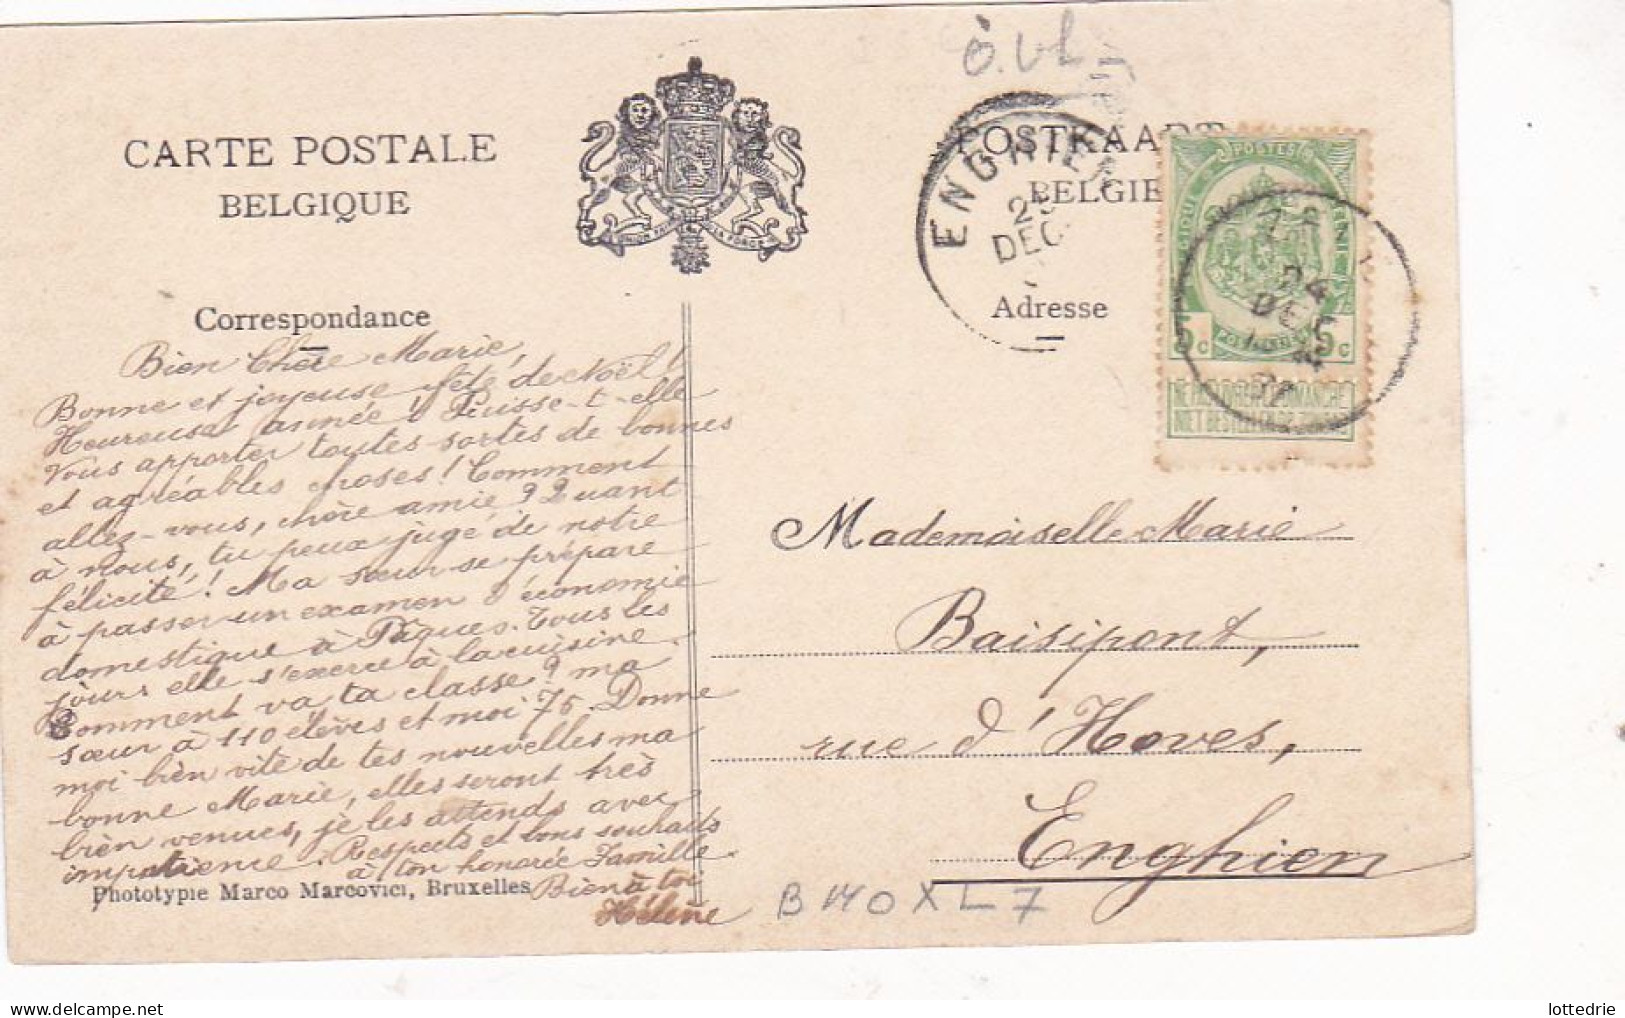 ô. Vl.
CARTE POSTALE
BELGIQUE
UNION FAIT LA FORCE
POSTKAART
BELGIE
ENGHIEN
25
DEC
POSTES
24
DEC
5c
NE PAS LIVRER LE DIMANCHE
NIET BESTELLEN OP ZONDAG
Correspondance
Adresse
Bien Chère Marie,
Bonne et joyeuse fête de Noël!
Heureuse année! Puisse-t-elle
vous apporter toutes sortes de bonnes
et agréables choses! Comment
allez-vous, chère amie? Quant
à nous, tu peux jugé de notre
félicité! Ma sœur se prépare
à passer un examen d'économie
domestique à Pâques. Tous les
jours elle s'exerce à la cuisine.
Comment va ta classe? ma
sœur a 110 élèves et moi 75. Donne
moi bien vite de tes nouvelles ma
bonne Marie, elles seront très
bien venues, je les attends avec
impatience. Respects et bons souhaits
à ton honorée Famille.
Bien à toi
Hélène
Phototypie Marco Marcovici, Bruxelles
Mademoiselle Marie
Baisipont,
rue d'Hoves,
Enghien
B 140 X L 7
delcampe.net
lottedrie